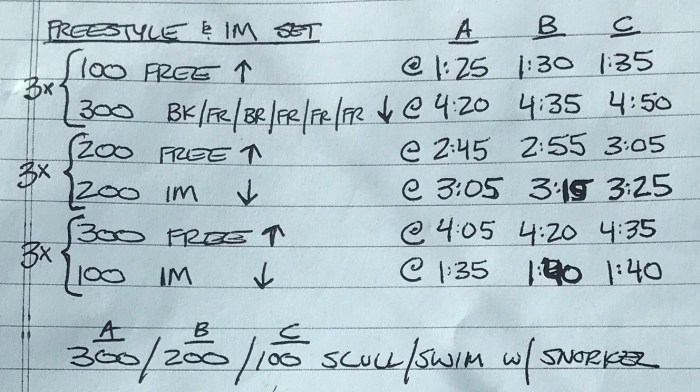 FREESTYLE & IM SET A B C
3x { 100 FREE ↑ @ 1:25 1:30 1:35
300 BK/FR/BR/FR/FR/FR ↓ @ 4:20 4:35 4:50
3x { 200 FREE ↑ @ 2:45 2:55 3:05
200 IM ↓ @ 3:05 3:15 3:25
3x { 300 FREE ↑ @ 4:05 4:20 4:35
100 IM ↓ @ 1:35 1:40 1:40
A B C
300/200/100 SCULL/SWIM W/ SNORKEL